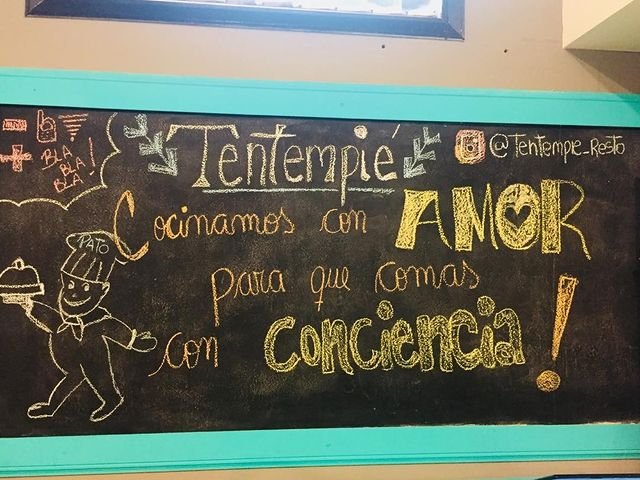 BLA
BLA
BLA!
Tentempié
@Tentempie_Resto
Cocinamos con AMOR
para que comas
con conciencia!
PATO